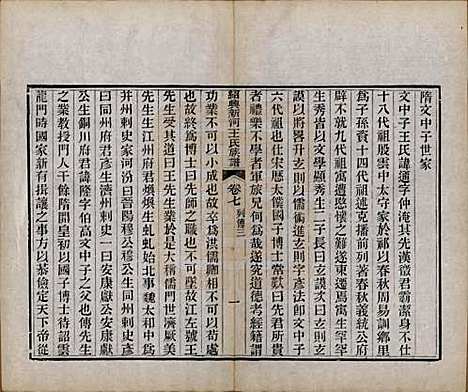 隋文中子世家
文中子王氏諱通字仲淹其先漢徵君霸潔身不仕
十八代祖殷雲中太守家於祁以春秋周易訓鄉里
為子孫資十四代祖述克播前烈著春秋義統公府
辟不就九代祖寓遭愍懷之難遂東遷焉寓生罕罕
生秀皆以文學顯秀生二子長曰玄謨次曰玄則玄
謨以將畧升玄則以儒術進玄則字彥法即文中子
六代祖也仕宋歷太僕國子博士常歎曰先君所貴
者禮樂不學者軍旅兄何為哉遂究道德考經籍謂
紹興新河王氏族譜
卷七
列傳二
一
功業不可以小成也故卒為洪儒卿相不可以苟處
也故終為博士曰先師之職也不可墜故江左號王
先生受其道曰王先生業於是大稱儒門世濟厥美
先生生江州府君煥煥生虬虬始北事魏太和中為
并州刺史家河汾曰晉陽穆公穆公生同州刺史彥
曰同州府君彥生濟州刺史一曰安康獻公安康獻
公生銅川府君諱隆字伯高文中子之父也傳先生
之業教授門人千餘隋開皇初以國子博士待詔雲
龍門時國家新有揖讓之事方以恭儉定天下帝從